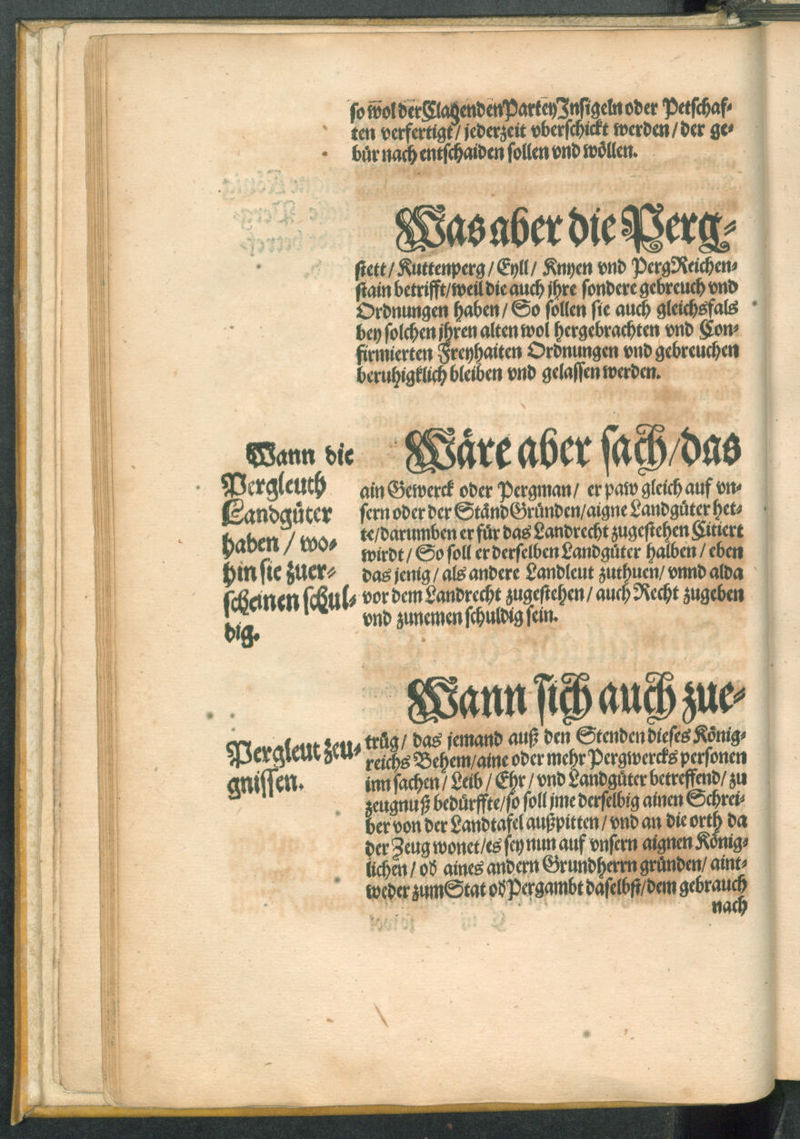 so wol der Clagenden Partey Insigeln oder Petschaf-
ten verfertigt / jederzeit vberschickt werden / der ge-
bür nach entschaiden sollen vnd wöllen.
Was aber die Perg-
stett / Kuttenperg / Eyll / Knyen vnd PergReichen-
stain betrifft / weil die auch jhre sondere gebreuch vnd
Ordnungen haben / So sollen sie auch gleichsfals
bey solchen jhren alten wol hergebrachten vnd Con-
firmierten Freyhaiten Ordnungen vnd gebreuchen
beruhigklich bleiben vnd gelassen werden.
Wann die
Pergleuth
Landgüter
haben / wo-
hin sie zuer-
scheinen schul-
dig.
Wäre aber sach / das
ain Gewerck oder Pergman / er paw gleich auf vn-
sern oder der Ständ Gründen / aigne Landgüter het-
te / darumben er für das Landrecht zugestehen Citiert
wirdt / So soll er derselben Landgüter halben / eben
das jenig / als andere Landleut zuthuen / vnnd alda
vor dem Landrecht zugestehen / auch Recht zugeben
vnd zunemen schuldig sein.
Pergleut zeu-
gnissen.
Wann sich auch zue-
trüg / das jemand auß den Stenden dieses König-
reichs Behem / aine oder mehr Pergwercks personen
inn sachen / Leib / Ehr / vnd Landgüter betreffend / zu
zeugnuß bedürffte / so soll jme derselbig ainen Schrei-
ber von der Landtafel außpitten / vnd an die orth da
der Zeug wonet / es sey nun auf vnsern aignen König-
lichen / od aines andern Grundherrn gründen / aint-
weder zum Stat od Pergambt daselbst / dem gebrauch
nach